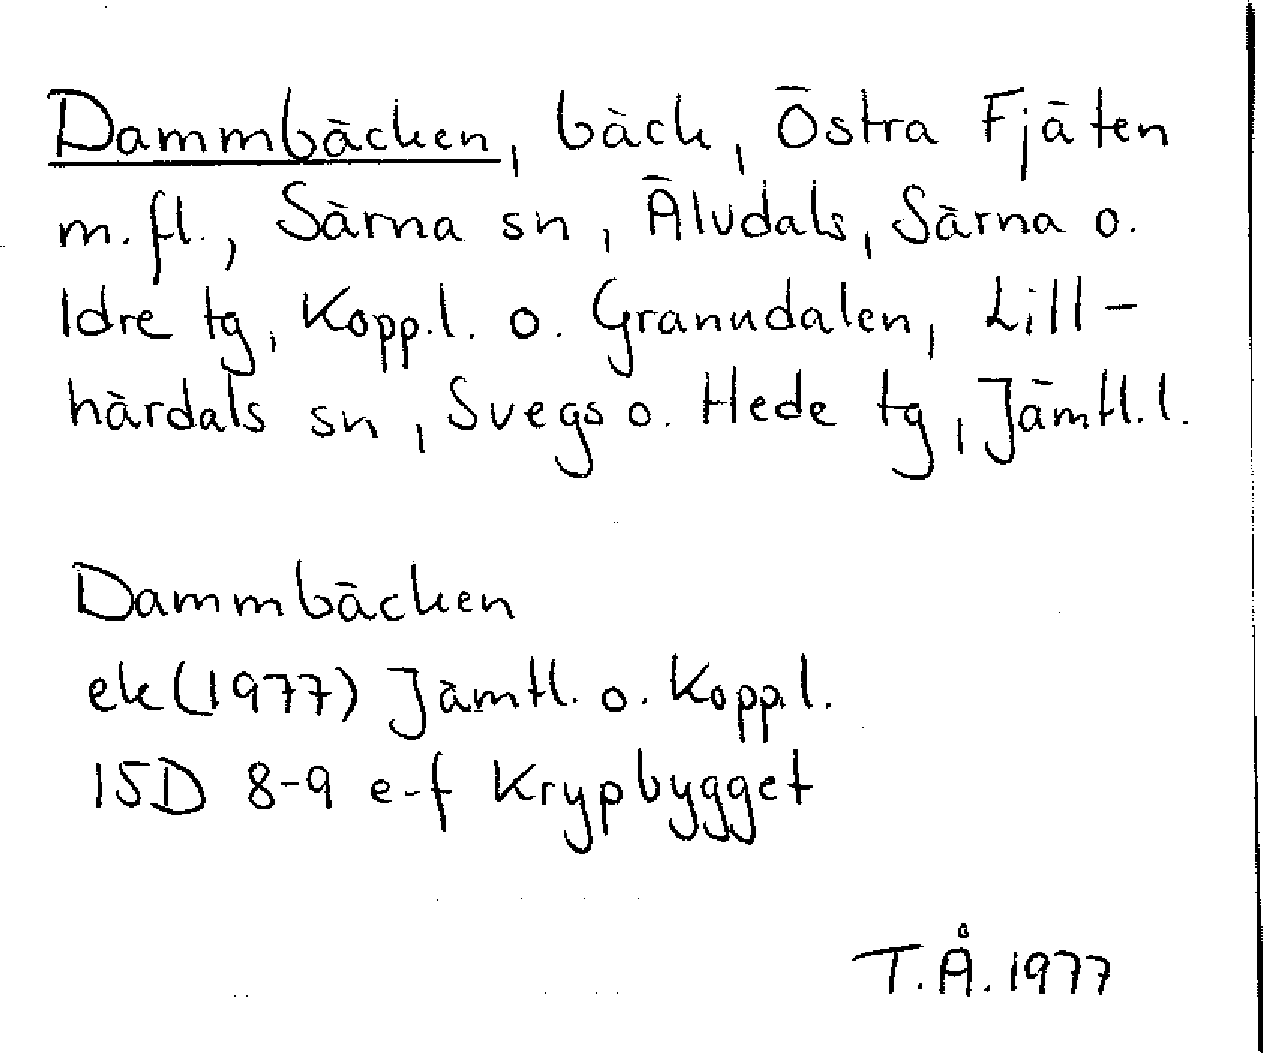 Dammbäcken, bäck, Östra Fjäten
m. fl., Särna sn, Älvdals, Särna o.
Idre tg, Kopp.l. o. Granudalen, Lill-
härdals sn, Svegs o. Hede tg, Jämtl.l.
Dammbäcken
ek(1977) Jämtl. o. Kopp.l.
15D 8-9 e-f Krypbygget
T.Å. 1977